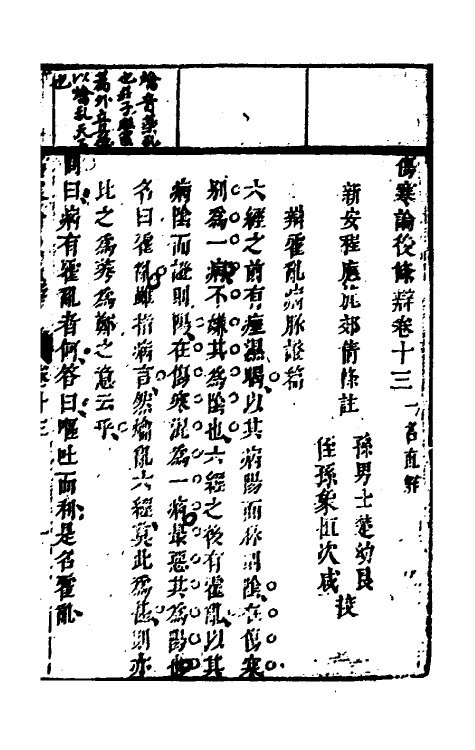 傷寒論後條辯卷十三 一名直解
新安程應旄郊倩條註
孫男士楚幼良
侄孫象恒次咸 挍
辯霍亂病脉證篇
六經之前有痙濕暍以其病陽而係則陰在傷寒
別爲一病不嫌其爲陰也六經之後有霍亂以其
病陰而證則陽在傷寒混爲一病最惡其爲陽也
名曰霍亂雖指病言然爚亂六經莫此爲甚則亦
比之爲莠爲鄭之意云乎
問曰病有霍亂者何答曰嘔吐而利是名霍亂
爚音藥亂
也莊子
爲外立其德
以爚亂天下
也